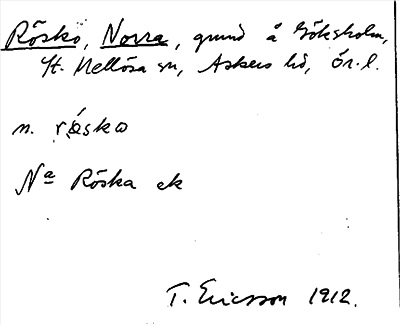 Röskö, Norra, grund å Göksholm,
St. Mellösa sn, Askers hd, Ör. l.
n. röskα
Nª Röska ek
T. Ericsson 1912.